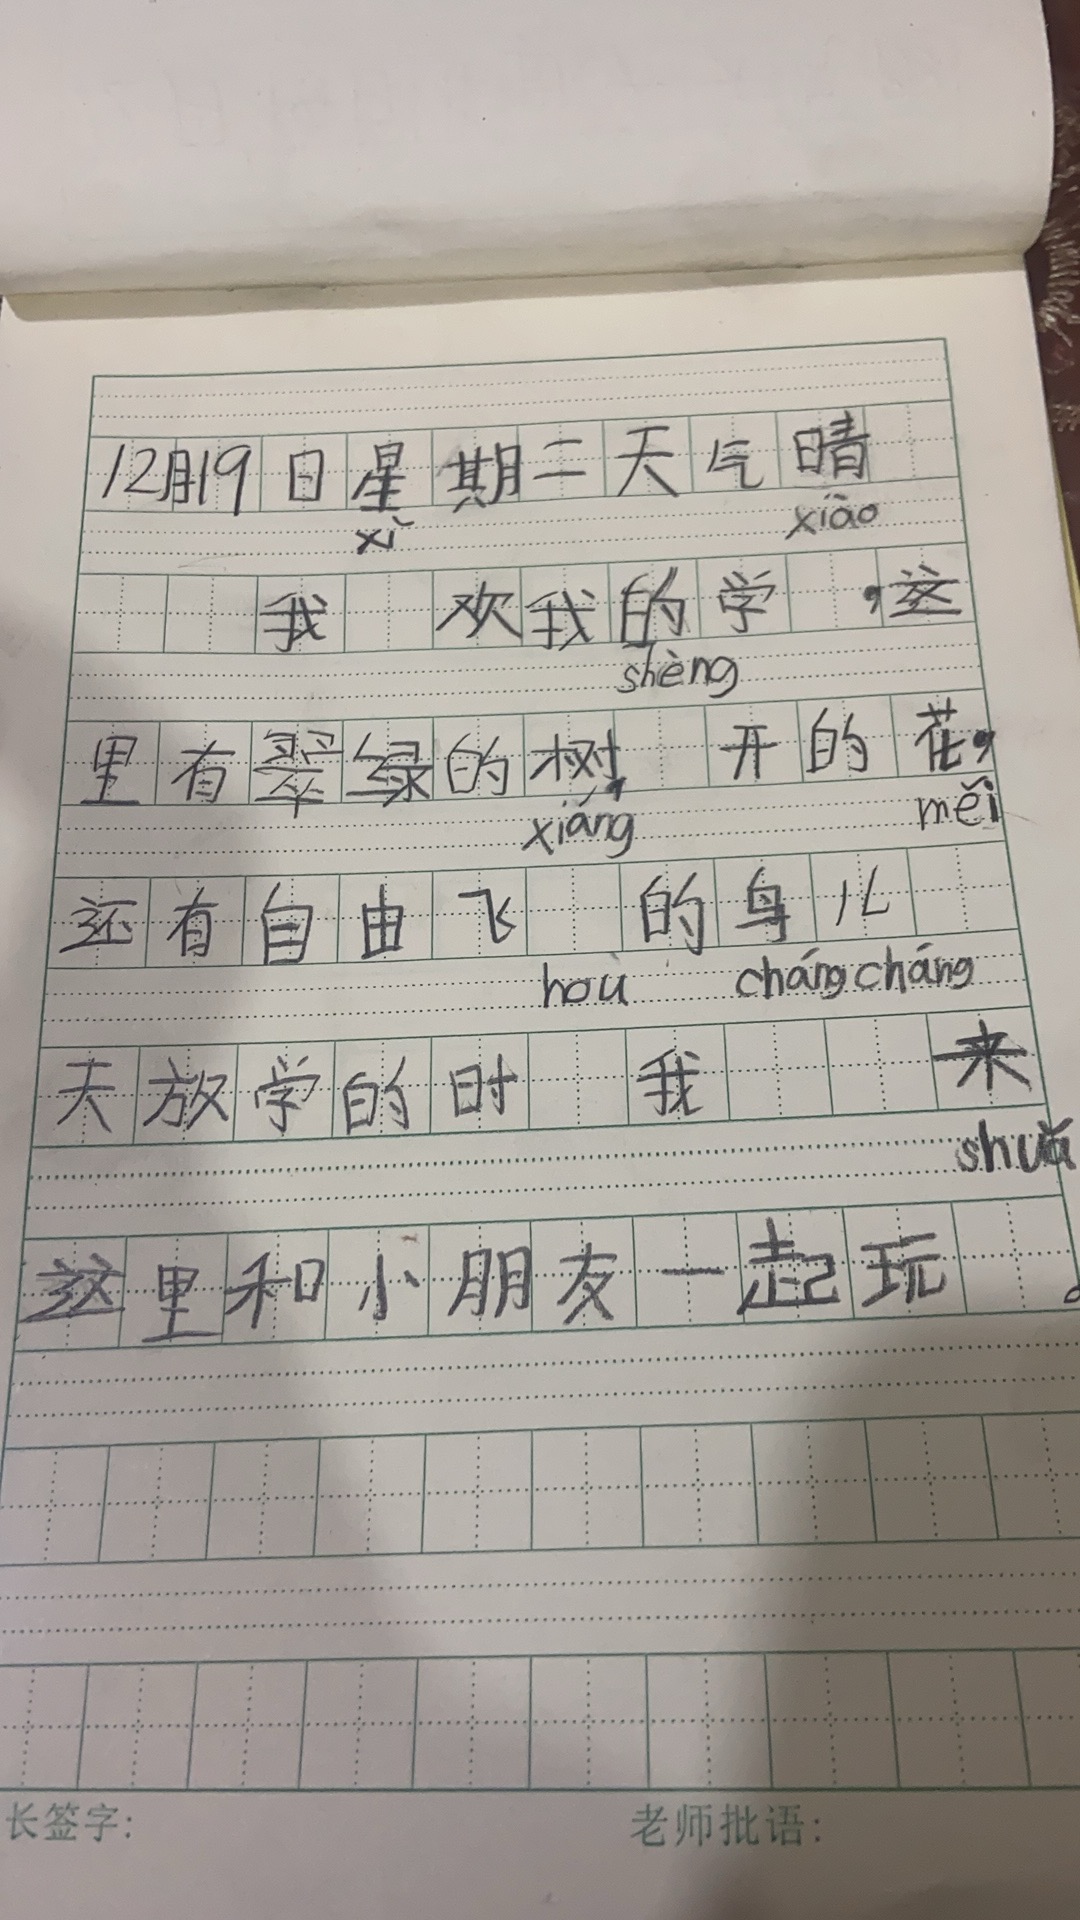 12月19日星期二天气晴
xǐ xiào
我 欢我的学 ,这
shèng
里有翠绿的树, 开的花,
xiáng měi
还有自由飞 的鸟儿
hou cháng cháng
天放学的时 我 来
shuǎ
这里和小朋友一起玩 。
长签字:
老师批语: